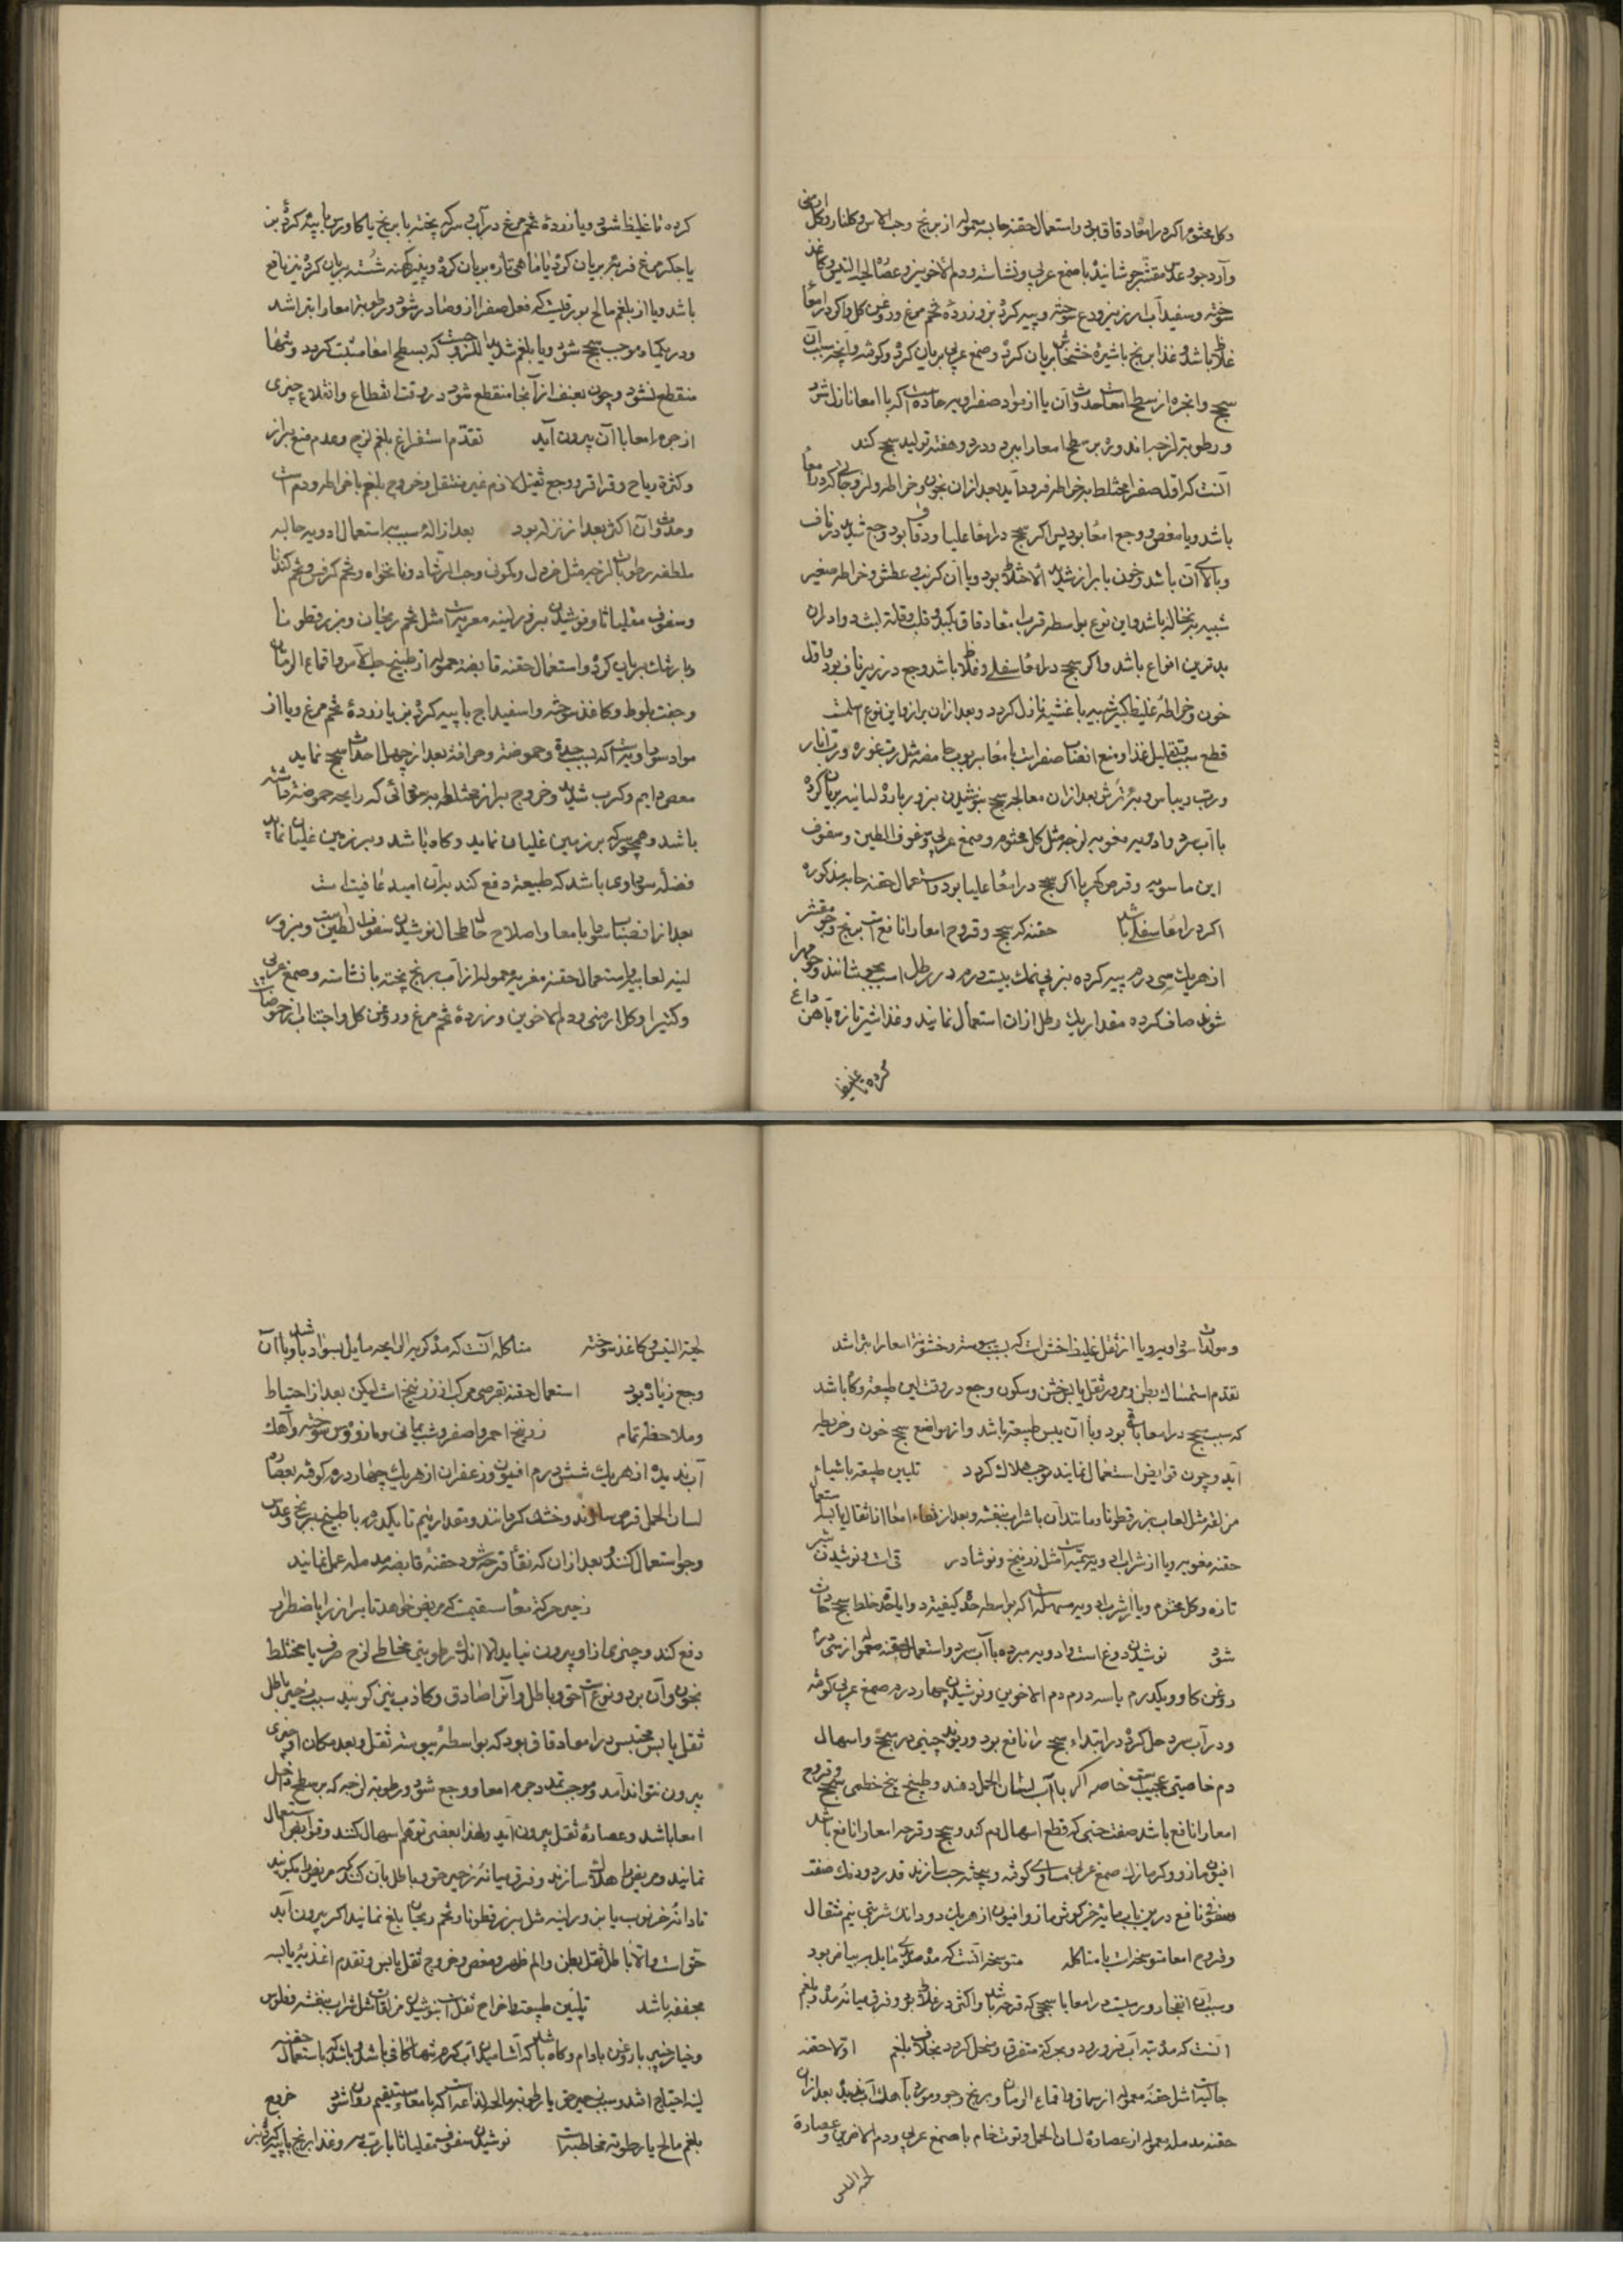 وکل مختوم اگر در امعاء دقاق بود و استعمال حقنه حابسه معموله از برنج و حب الاس و کلنار و کل ارمنی
و آرد جو و عدس مقشر جوشانیده با صمغ عربی و نشاسته و دم الاخوین و عصاره لحیة التیس و کاغذ
سوخته و سفیداب ارزیز و ودع سوخته و پیه کرده بز و زرده تخم مرغ و روغن کل و اکر در امعاء
غلاظ باشد و غذا برنج با شیره خشخاش بریان کرده و صمغ عربی بریان کرده و کوفته و آمیخته
سحج و انجره از سطح امعاست و حدوث آن یا از مواد صفراویه حاده است که با امعا نازل شود
و رطوبة لزجه را که بر سطح امعا را ببرد و در دو هفته تولید سحج کند
آنست که اول صفرا مختلط به خراطه فرود آید بعد از ان بخون و خراطه و لزوجات کرد در امعا
باشد و یا مغص و وجع امعا بود پس اکر سحج در امعاء علیا و دقاق بود وجع شدید در ناف
و بالای آن باشد و خون با براز شدید الاختلاط بود و با آن کرب و عطش و خراطه صغیر
شبیه به نخاله باشد و این نوع بواسطه قرب امعاء دقاق بکبد و قلب
بدترین انواع باشد و اکر سحج در امعاء سفلی و غلاظ باشد وجع در زیر ناف بود و اول
خون و خراطه غلیظ کبیر شبیه باغشیه نازل کردد و بعد از ان براز و این نوع اسلمست
قطع سبب بتقلیل غذا و منع انصباب صفراست بامعا بربوب حامضه مثل رب غوره و رب انار
و رب ریباس و به ترش بعد از ان معالجه سحج بنوشیدن بزور بارده لعابیه بریان کرده
با آب سرد و ادویه مغریه لزجه مثل کل مختوم و صمغ عربی و سفوف الطین و سفوف
ابن ماسویه و قرص کهربا اکر سحج در امعاء علیا بود و استعمال حقنه حابسه مذکوره
اکر در امعاء سفلی باشد حقنه که سحج و قروح امعا را نافع است برنج و جو مقشر
از هر یک سی درم پیه کرده بز بی نمک بیست درم در رطل آب بجوشانند و چون مهرا
شود صاف کرده مقدار یک رطل از ان استعمال نمایند و غذا شیر تازه بآهن داغ
کرده تا غلیظ
کرده تا غلیظ شود و یا زرده تخم مرغ در آب سرکه پخته با برنج یا کاورس با پیه کرده بز
یا جکر مرغ فربه بریان کرده یا ماهی تازه بریان کرده و پنیر کهنه شسته بریان کرده نیز نافع
باشد و یا از بلغم مالح بورقیست که فعل صفرا از و صادر شود و رطوبة امعا را بتراشد
و در یکماه موجب سحج شود و یا بلغم شدید اللزوجت که بسطح امعا متشبث کردد و تنها
منقطع نشود و چون بعنف از آنجا منقطع شود در وقت انقطاع و انقلاع چیزی
از جرم امعا با آن بیرون آید تقدم استفراغ بلغم لزج و عدم صبغ براز
و کثرة ریاح و قراقر و وجع ثقیل لازم غیر منتقل و خروج بلغم با خراطه و دم است
و حدوث آن اکثر بعد از نزله بود بعد از ازاله سبب استعمال ادویه جالبه
ملطفه رطوبات لزجه مثل خردل و کمونی و حب الرشاد و نانخواه و تخم کرفس و تخم کندنا
و سفوف مقلیاثا و نوشیدن بزور لینه مغریه است مثل تخم ریحان و بزر قطونا
و بارتنک بریان کرده و استعمال حقنه قابضه معموله از طبیخ حب الاس و اقماع الرمان
و جفت بلوط و کاغذ سوخته و اسفیداج با پیه کرده بز یا زرده تخم مرغ و یا از
مواد سوداویه است که بسبب حدة و حموضة و حرافة بعد از چهل روز احداث سحج نماید
مغص دایم و کرب شدید و خروج براز مختلط به سودائی که رایحه حموضة داشته
باشد و همچو سرکه بر زمین غلیان نماید و کاه باشد و بر زمین غلیان نماید
فضله سوداوی باشد که طبیعة دفع کند بدان امید عافیت است
بعد از انصباب سودا با معا و اصلاح حال طحال نوشیدن سفوف الطین است و بزور
لینه لعابیه و استعمال حقنه مغریه معموله از آب برنج پخته با نشاسته و صمغ عربی
و کتیرا و کل ارمنی و دم الاخوین و زرده تخم مرغ و روغن کل و اجتناب از حموضات
و مواد سوداویه و یا از ثقل غلیظ اخشن است که بسبب یبوست و خشونة امعا را بتراشد
تقدم استمساک بطن و مرور ثقل یابس خشن و سکون وجع در وقت لین طبیعة و کاه باشد
که سبب سحج در امعا باقی بود و با آن یبس طبیعة باشد و از مواضع سحج خون و خریطه
آید و چون قوابض استعمال نمایند موجب هلاک کردد تلیین طبیعة باشیاء
مزلقه مثل لعاب بزر قطونا و مانند آن با شراب بنفشه و بعد از نقاء امعا از اثقال یابسه استعمال
حقنه مغریه و یا از شرب ادویه سمیه است مثل زرنیخ و نوشادر قی است و نوشیدن شیر
تازه و کل مختوم و یا از شرب ادویه مسهله است که بواسطه حدة کیفیة دوا یا حدة خلط سحج حادث
شود نوشیدن دوغ است و ادویه مبرده با آب سرد و استعمال حقنه معمول از سی درم
روغن کاو و یکدرم یا سه درم دم الاخوین و نوشیدن چهار درم صمغ عربی کوفته
و در آب سرد حل کرده در ابتداء سحج را نافع بود و ریوند چینی در سحج و اسهال
دم خاصیتی عجیب است خاصه اکر با آب لسان الحمل دهند و طبیخ بیخ خطمی سحج و قروح
امعا را نافع باشد صفت حبی که قطع اسهال دم کند و سحج و قرحه امعا را نافع باشد
افیون مازو و کزمازک صمغ عربی مساوی کوفته و بیخته حب سازند قدر دو دانک صفت
سفوفی نافع درین باب مایه خرکوش مازو افیون از هر یک دو دانک شربتی نیم مثقال
و قروح امعا متوسخه است یا متاکله متوسخه آنست که مده صدیدی مایل به بیاض بود
و سبب آن انفجار ورمیست در امعا یا سحجی که قرحه شده باشد و اکثر در غلاظ بود و فرق میانه مده و بلغم
آنست که مده بته آب فرو رود و بحرکة متفرق و منحل کردد بخلاف بلغم اولا حقنه
جالیه است مثل حقنه معمول از سماق و اقماع الرمان و برنج و جو و مورد با آهک آب ندیده بعد از ان
حقنه مدمله معموله از عصاره لسان الحمل و توت خام با صمغ عربی و دم الاخوین و عصارة
لحیة التیس
لحیة التیس و کاغذ سوخته متاکله آنست که مده کریه الرایحه مایل بسواد باشد و با آن
وجع زیاده بود استعمال حقنه بقرصی مرکب از زرنیخ است لیکن بعد از احتیاط
و ملاحظه تمام زرنیخ احمر و اصفر و شب یمانی و مازو و روس سوخته و آهک
آب ندیده از هر یک شش درم افیون و زعفران از هر یک چهار درم کوفته بعصاره
لسان الحمل قرص سازند و خشک کردانند و مقدار نیم تا یکدرم با طبیخ برنج و عدس
و جو استعمال کنند و بعد از ان که نقاء قرحه شود حقنه قابضه مدمله عمل نمایند
زحیر حرکة معاء مستقیمست که مریض خواهد تا براز را باضطرار
دفع کند و چیزی از او بیرون نیاید الا اندک رطوبتی مخاطی لزج صرف یا مختلط
بخون و آن بر دو نوع است حق و باطل و آنرا صادق و کاذب نیز کویند سبب زحیر باطل
ثقل یابس محتبس در امعاء دقاق بود که بواسطه یبوسته ثقل و بعد مکان او چیزی
بیرون نتواند آمد و موجب تمدد جرم امعا و وجع شود و رطوبة لزجه که بر سطح داخل
امعا باشد و عصاره ثقل بیرون آید و لهذا بعضی توهم اسهال کنند و قوابض استعمال
نمایند و مریض را هلاک سازند و فرق میانه زحیر حق و باطل بآن کنند که مریض را بکویند
تا دانه خرنوب یا بزور لینه مثل بزر قطونا و تخم ریحان بلع نماید اکر بیرون آید
حق است و الا باطل ثقل بطن و الم ظهر و مغص و خروج ثقل یابس و تقدم اغذیه یابسه
مجففه باشد تلیین طبیعت با خراج ثقل است بنوشیدن مزلقات مثل شراب بنفشه و فلوس
و خیار چنبر با روغن بادام و کاه باشد که آشامیدن آب کرم تنها کافی باشد و باشد که باستعمال حقنه
لینه احتیاج افتد و سبب زحیر حق یا رطوبة مالحه لذاعه است که بامعاء مستقیم روانه شود خروج
بلغم مالح یا رطوبة مخاطیه است نوشیدن سفوف مقلیاثا با رب به و غذا برنج با پیه کرده بز